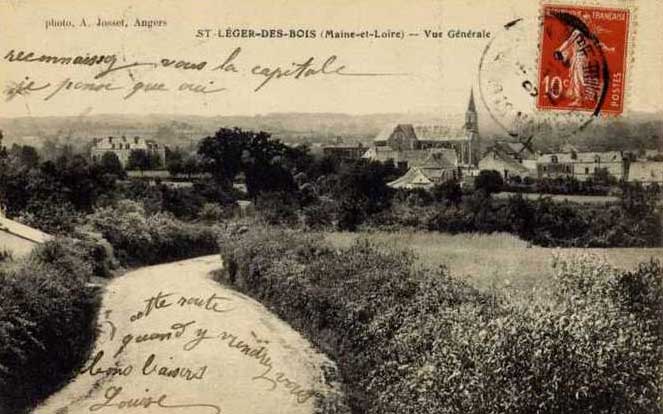 photo, A. Josset, Angers
ST-LÉGER-DES-BOIS (Maine-et-Loire) — Vue Générale
RÉPUBLIQUE FRANÇAISE
10c
POSTES
reconnaissez vous la capitale
je pense que oui
cette route
quand y viendrez vous
bons baisers
Louise